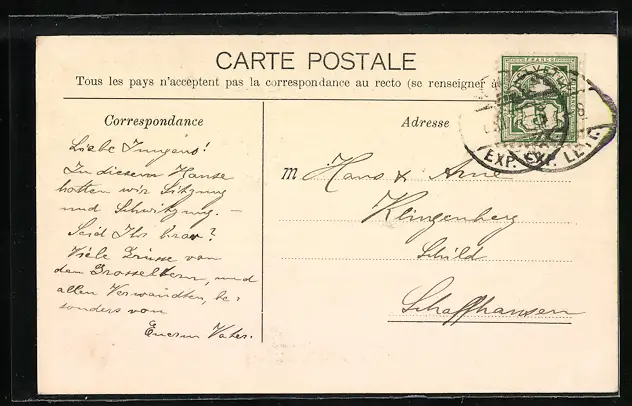 CARTE POSTALE
Tous les pays n'acceptent pas la correspondance au recto (se renseigner
FRANCO
HELVETIA
EXP. EXP. LETT.
Correspondance
Adresse
Liebe Jungens!
In diesem Hause
hatten wir Sitzung
und Schwitzung. —
Seid Ihr brav?
Viele Grüsse von
den Grosseltern, und
allen Verwandten, be-
sonders von
Eurem Vater.
M Hans & Arne
Klingenberg
Schild
Schaffhausen